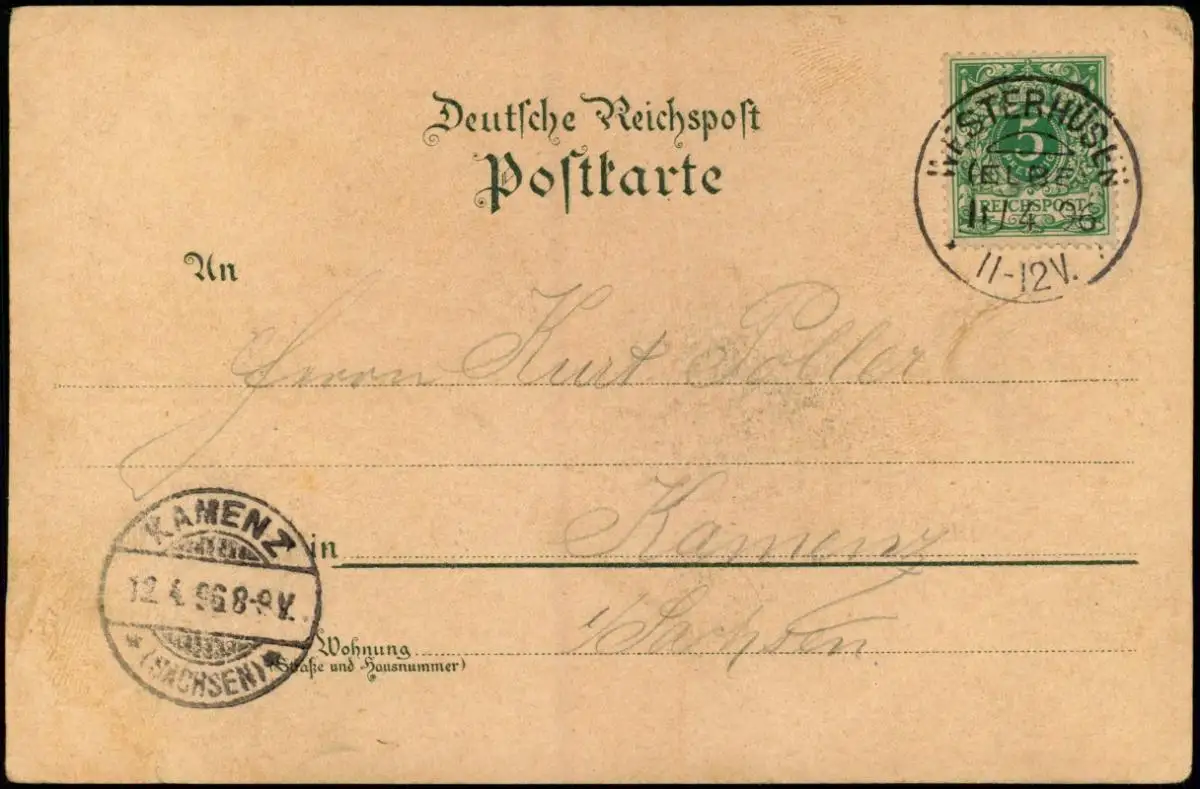 Deutsche Reichspost
Postkarte
WESTERHÜSEN
(ELBE)
11/4 96
11-12V.
5
REICHSPOST
An
Herrn Kurt Poller
KAMENZ
12.4.96 8-9V.
(SACHSEN)
in Kamenz
i/Sachsen
Wohnung
(Straße und Hausnummer)